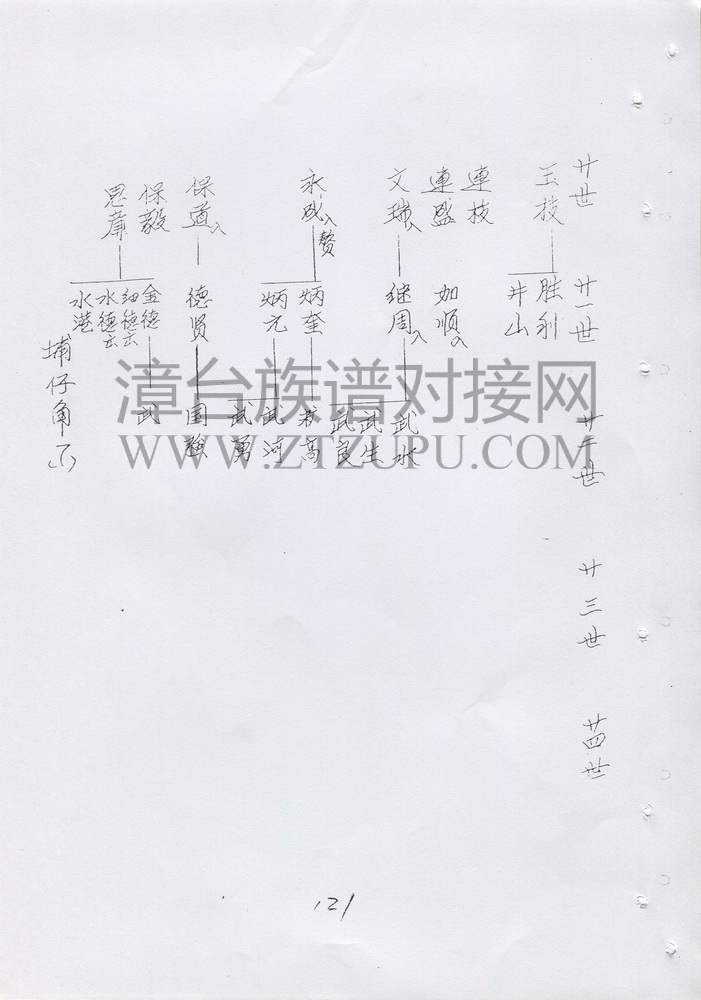 廿世
廿一世
廿二世
廿三世
廿四世
玉枝
胜利
井山
連枝
連盛
加順入
文瑞入
继周入
武水
武生
武良
永成入贅
炳奎
炳元
武高
武河
武勇
保道入
德贤
国强
保毅
思庸
金德
细德亡
水德亡
水港
武
埔仔角
漳台族谱对接网
WWW.ZTZUPU.COM
121